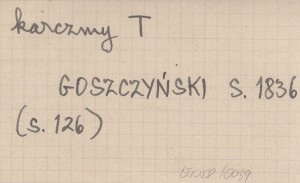 karczmy T
GOSZCZYŃSKI s. 1836
(s. 126)